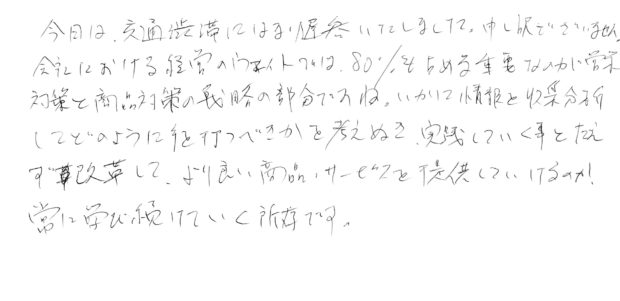 今日は、交通渋滞にはまり遅参いたしまして、申し訳ございません。
会社における経営のウェイトでは、80%を占める重要なのが営業
対策と商品対策の戦略の部分ですね。いかに情報を収集分析
してどのように手を打つべきかを考えぬき、実践していく事とたえ
ず改革して、より良い商品、サービスを提供していけるのか!
常に学び続けていく所存です。